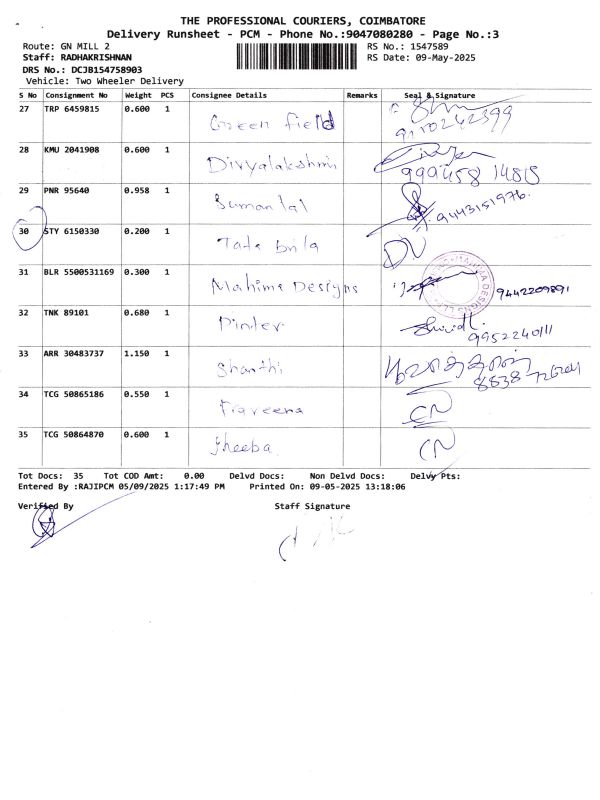 THE PROFESSIONAL COURIERS, COIMBATORE
Delivery Runsheet - PCM - Phone No.:9047080280 - Page No.:3
Route: GN MILL 2
RS No.: 1547589
Staff: RADHAKRISHNAN
RS Date: 09-May-2025
DRS No.: DCJB154758903
Vehicle: Two Wheeler Delivery
S No Consignment No Weight PCS Consignee Details Remarks Seal & Signature
27 TRP 6459815 0.600 1 Green field
28 KMU 2041908 0.600 1 Divyalakshmi
29 PNR 95640 0.958 1 Sumanlal 9443151976.
30 STY 6150330 0.200 1 Tata DN
31 BLR 5500531169 0.300 1 Mahima Designs 9442209891
32 TNK 89101 0.680 1 Pinter 9952240111
33 ARR 30483737 1.150 1 Shanthi
34 TCG 50865186 0.550 1 Praveena CN
35 TCG 50864870 0.600 1 Sheeba CN
Tot Docs: 35 Tot COD Amt: 0.00 Delvd Docs: Non Delvd Docs: Delvy Pts:
Entered By :RAJIPCM 05/09/2025 1:17:49 PM Printed On: 09-05-2025 13:18:06
Verified By Staff Signature